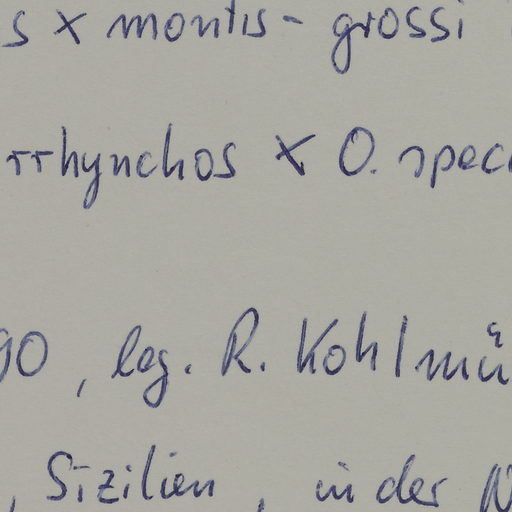 s x montis-grossi
rrhynchos x O. spec
90, leg. R. Kohlmü
, Sizilien, in der N